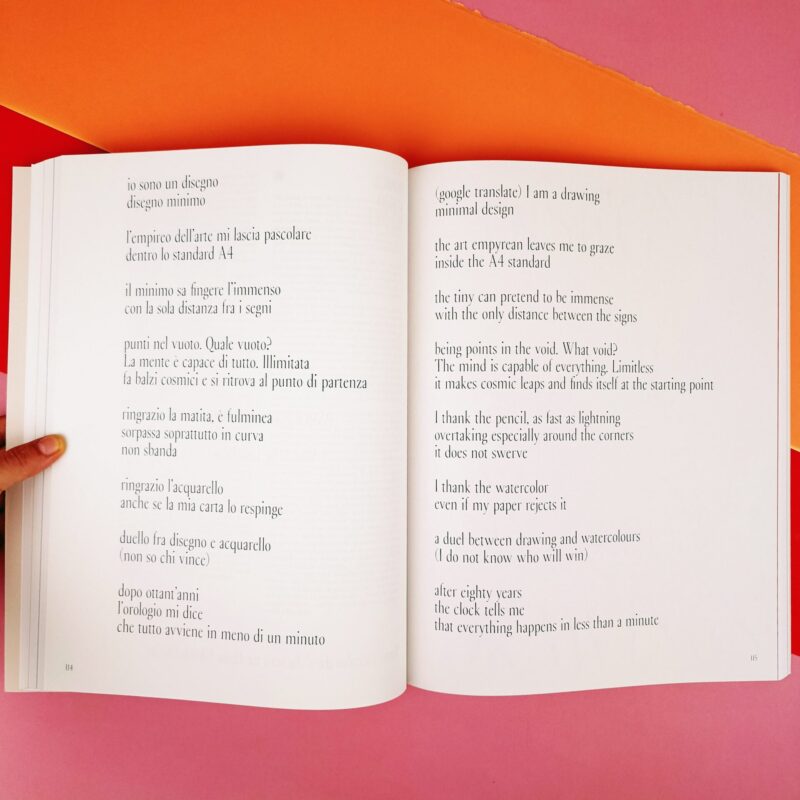 io sono un disegno
disegno minimo
l'empireo dell'arte mi lascia pascolare
dentro lo standard A4
il minimo sa fingere l'immenso
con la sola distanza fra i segni
punti nel vuoto. Quale vuoto?
La mente è capace di tutto. Illimitata
fa balzi cosmici e si ritrova al punto di partenza
ringrazio la matita, è fulminea
sorpassa soprattutto in curva
non sbanda
ringrazio l'acquarello
anche se la mia carta lo respinge
duello fra disegno e acquarello
(non so chi vince)
dopo ottant'anni
l'orologio mi dice
che tutto avviene in meno di un minuto
114
(google translate) I am a drawing
minimal design
the art empyrean leaves me to graze
inside the A4 standard
the tiny can pretend to be immense
with the only distance between the signs
being points in the void. What void?
The mind is capable of everything. Limitless
it makes cosmic leaps and finds itself at the starting point
I thank the pencil, as fast as lightning
overtaking especially around the corners
it does not swerve
I thank the watercolor
even if my paper rejects it
a duel between drawing and watercolours
(I do not know who will win)
after eighty years
the clock tells me
that everything happens in less than a minute
115